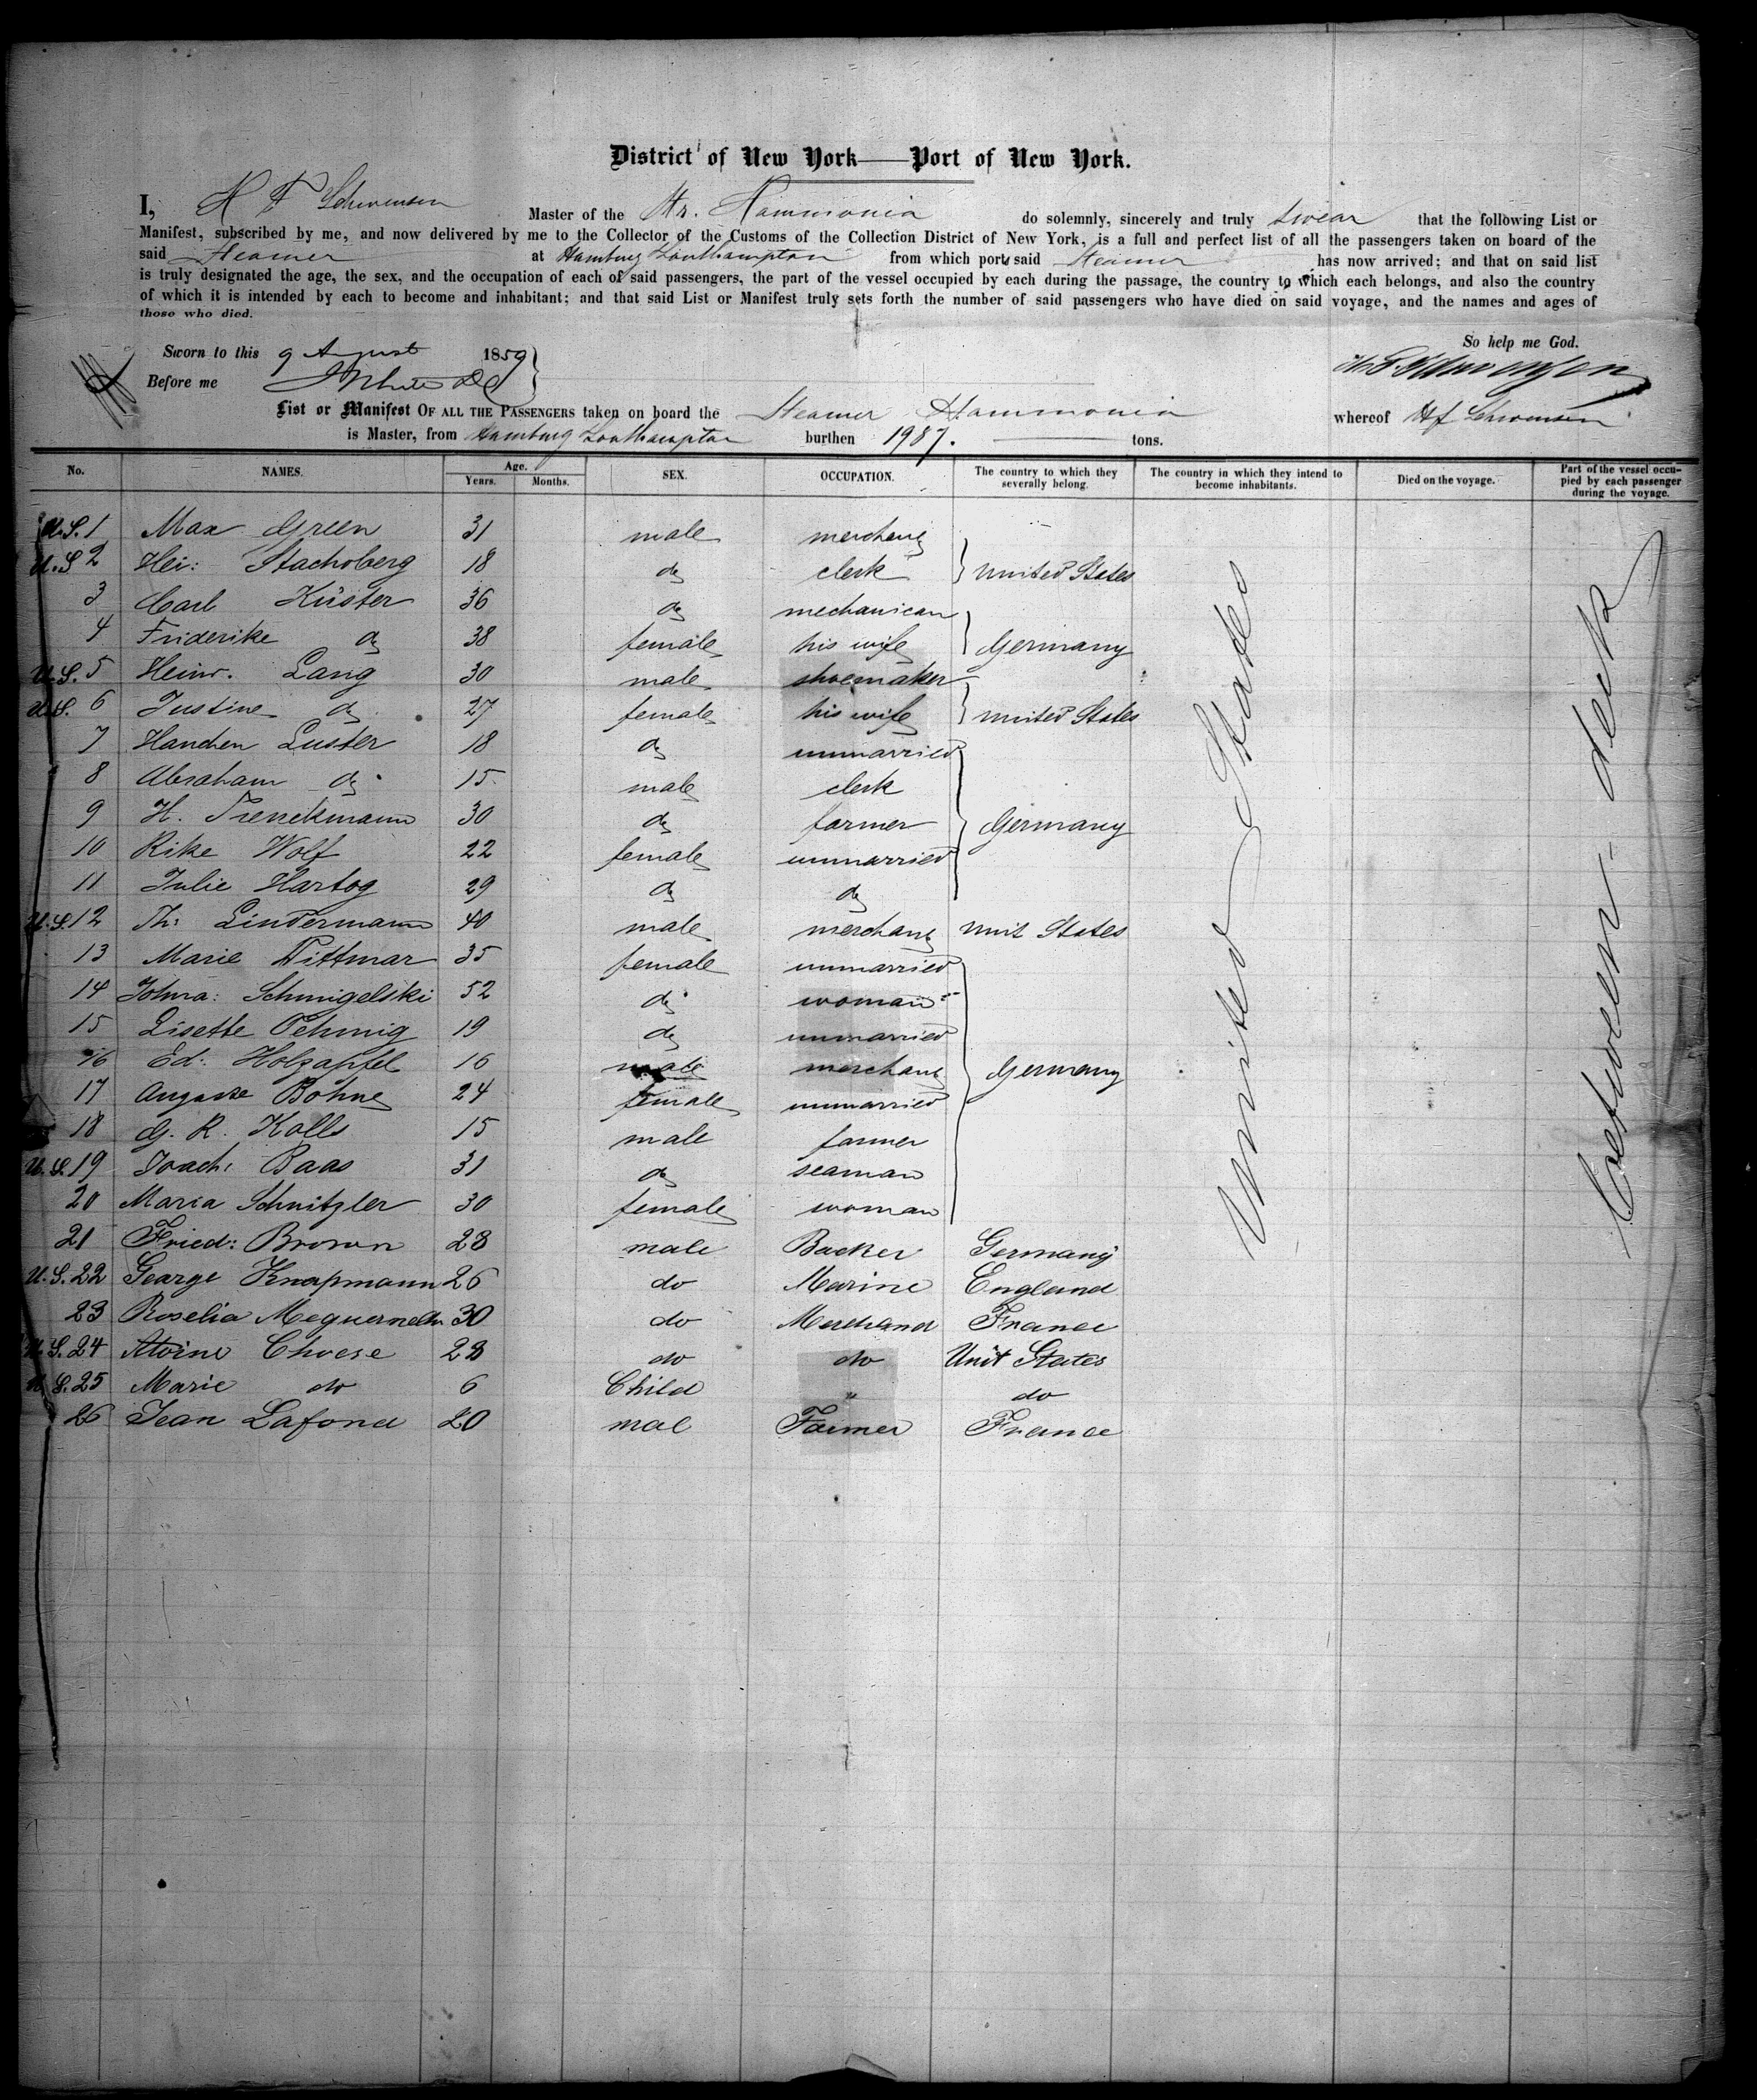 District of New York — Port of New York.
I, H F Schwensen Master of the Str. Hammonia do solemnly, sincerely and truly swear that the following List or
Manifest, subscribed by me, and now delivered by me to the Collector of the Customs of the Collection District of New York, is a full and perfect list of all the passengers taken on board of the
said Steamer at Hamburg Southampton from which port said Steamer has now arrived; and that on said list
is truly designated the age, the sex, and the occupation of each of said passengers, the part of the vessel occupied by each during the passage, the country to which each belongs, and also the country
of which it is intended by each to become and inhabitant; and that said List or Manifest truly sets forth the number of said passengers who have died on said voyage, and the names and ages of
those who died.
So help me God.
Sworn to this 9 August 1859
Before me
List or Manifest OF ALL THE PASSENGERS taken on board the Steamer Hammonia whereof H f Schwensen
is Master, from Hamburg Southampton burthen 1987. tons.
No. NAMES. Age. Years. Months. SEX. OCCUPATION. The country to which they severally belong. The country in which they intend to become inhabitants. Died on the voyage. Part of the vessel occupied by each passenger during the voyage.
U.S. 1 Max Green 31 male merchant
U.S 2 Hei: Stacholberg 18 do clerk United States
3 Carl Küster 36 do mechanican
4 Friderike do 38 female his wife Germany
U.S. 5 Heinr. Lang 30 male shoemaker
U.S. 6 Justine do 27 female his wife United States
7 Hanchen Luster 18 do unmarried
8 Abraham do 15 male clerk
9 H. Trenckmann 30 do farmer Germany
10 Rike Wolf 22 female unmarried
11 Julie Hartog 29 do do
U.S. 12 Th: Lindermann 40 male merchant Unit States
13 Marie Dittmar 35 female unmarried
14 Johna: Schmigelski 52 do woman
15 Lisette Oehmig 19 do unmarried
16 Ed: Holzapfel 16 male merchant Germany
17 Auguste Böhne 24 female unmarried
18 G. R. Kolls 15 male farmer
U.S. 19 Joach: Baas 31 do seaman
20 Maria Schnitzler 30 female woman
21 Fried: Brown 28 male Backer Germany
U.S. 22 George Knapmann 26 do Marine England
23 Roselia 30 do Merchand France
U.S. 24 Choese 28 do do Unit States
U.S. 25 Marie do 6 Child " do
26 Jean Lafond 20 mal Farmer France
United States
Between deck